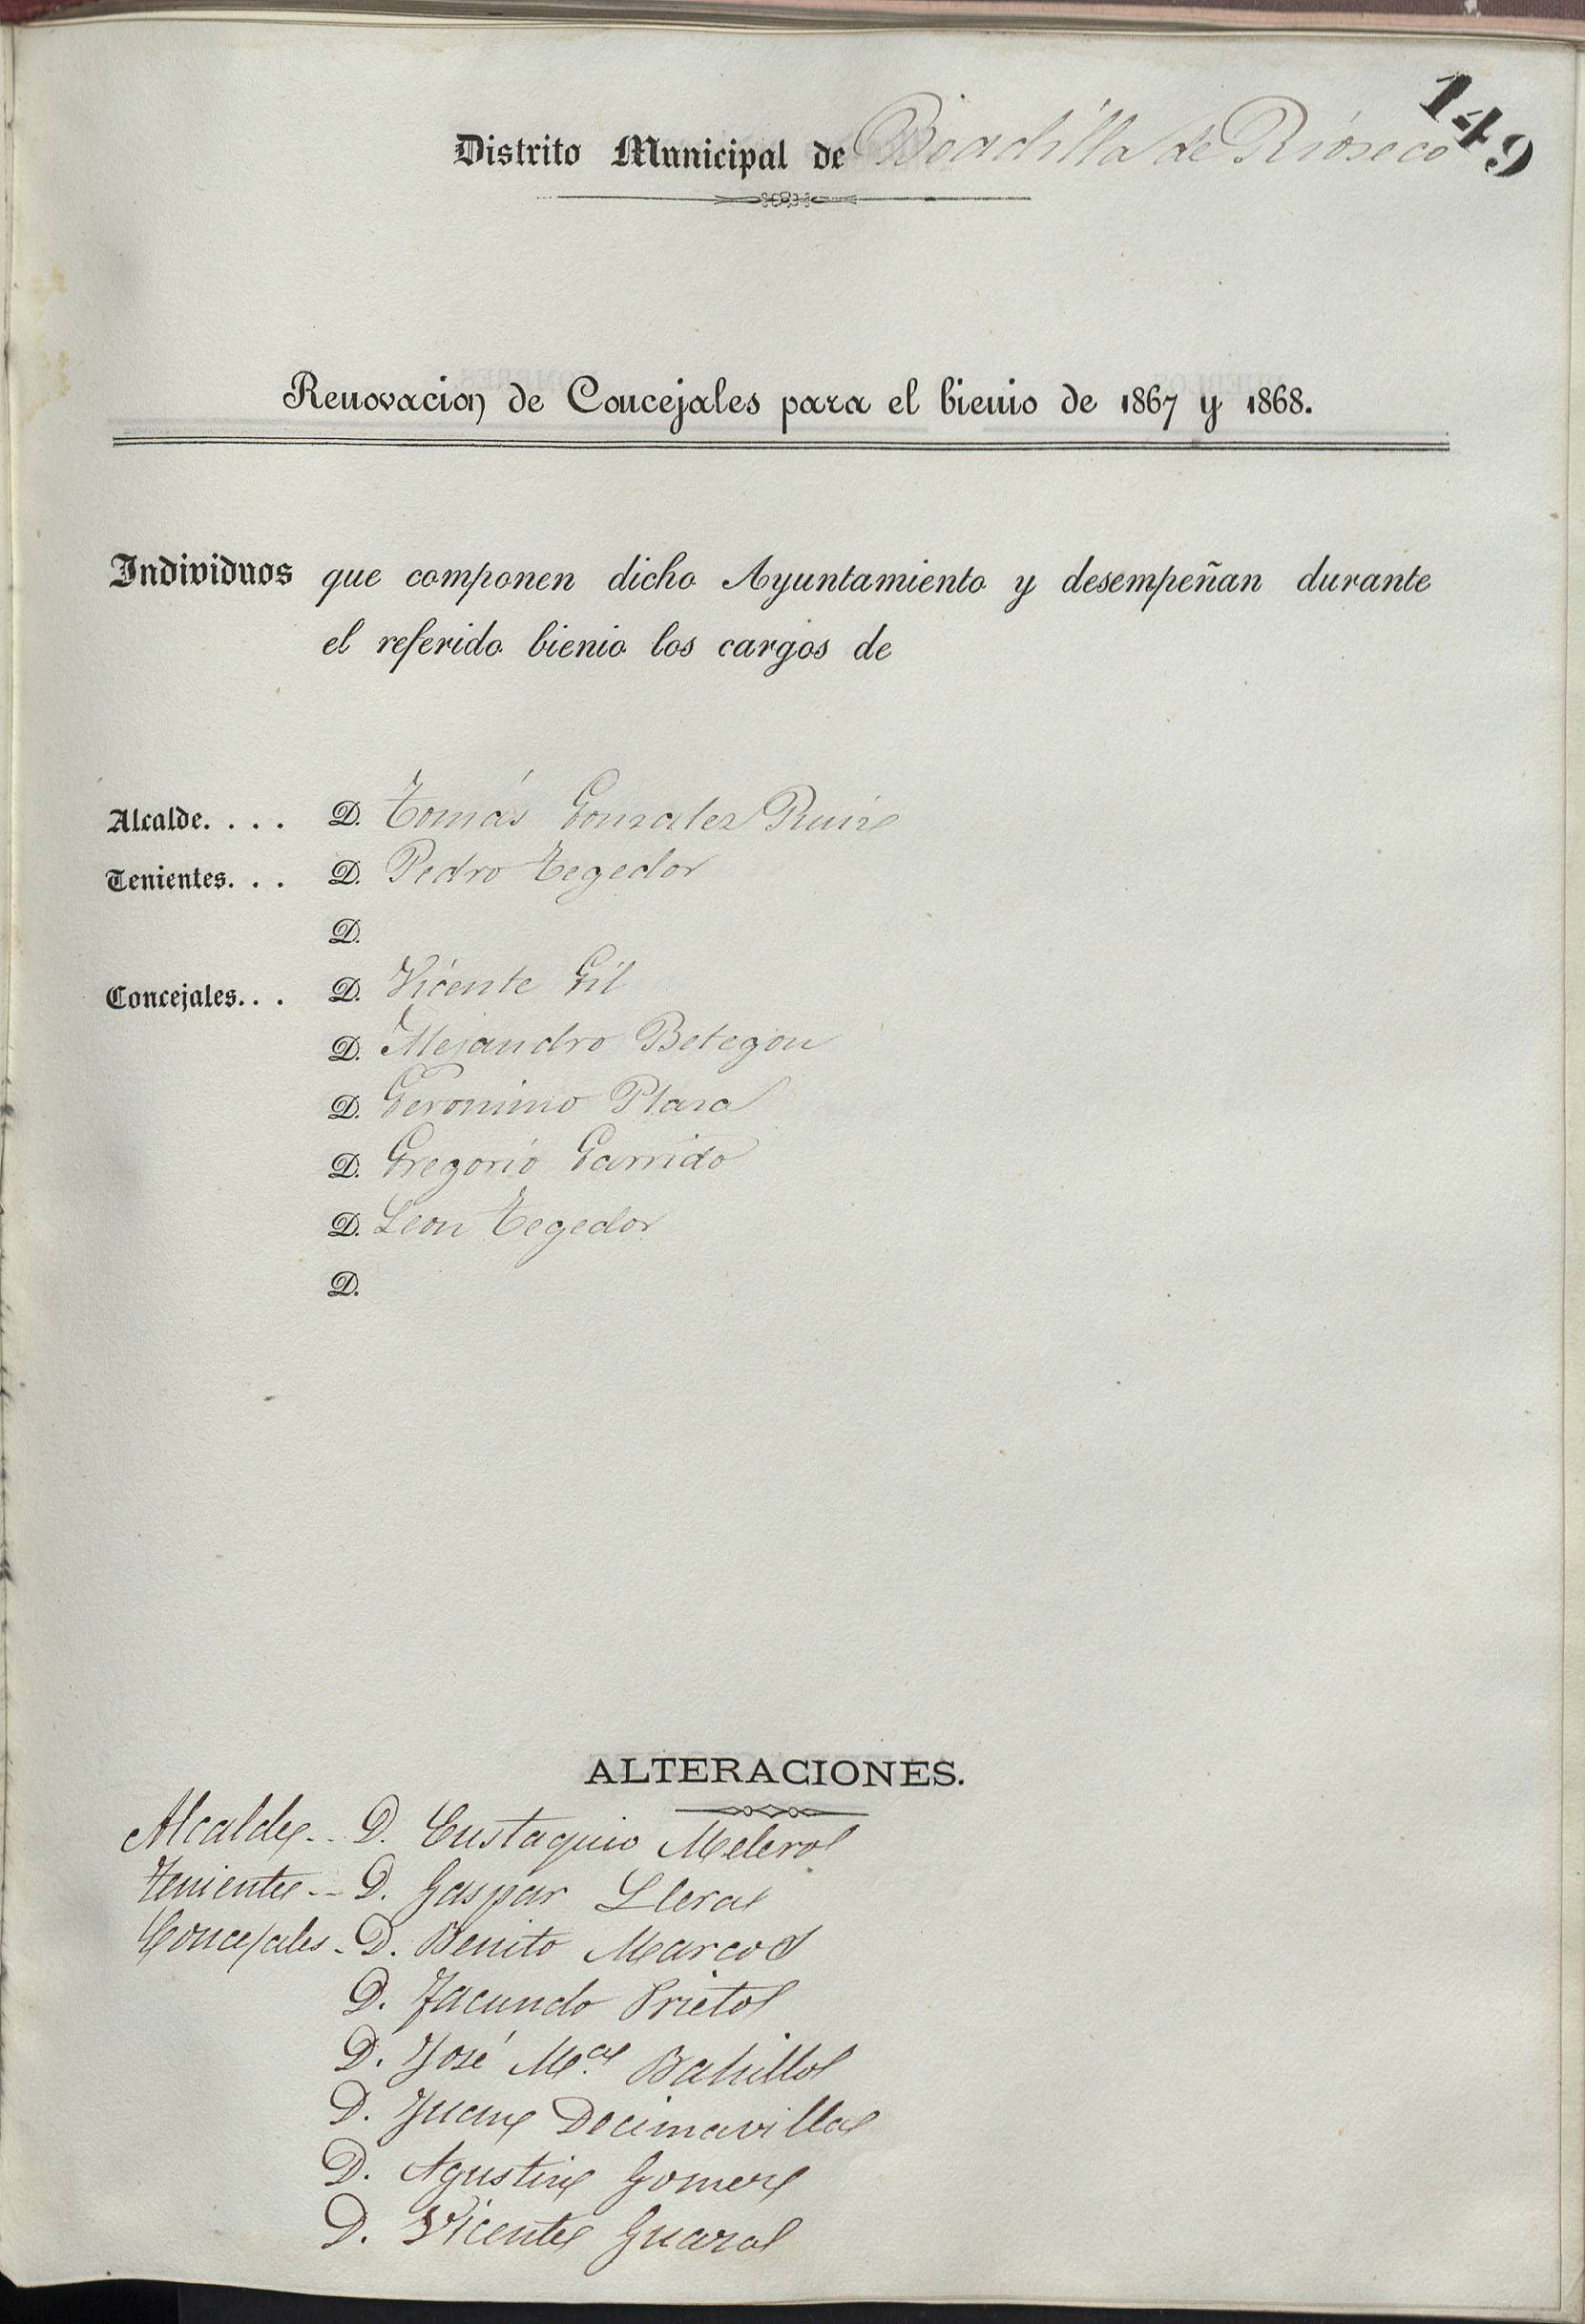 149
Distrito Municipal de Boadilla de Rioseco
Renovacion de Concejales para el bienio de 1867 y 1868.
Individuos que componen dicho Ayuntamiento y desempeñan durante
el referido bienio los cargos de
Alcalde. . . . D. Tomás Gonzalez Ruiz
Tenientes. . . D. Pedro Tegedor
D.
Concejales. . . D. Vicente Gil
D. Alejandro Betegon
D. Geronimo Plaza
D. Gregorio Garrido
D. Leon Tegedor
D.
ALTERACIONES.
Alcalde - - D. Eustaquio Melero
Teniente - - D. Gaspar Llera
Concejales - D. Benito Marcos
D. Facundo Prieto
D. José M.a Bahillo
D. Juan Decimavilla
D. Agustin Gomez
D. Vicente Guaza